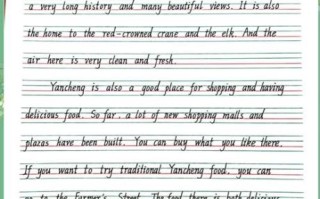 a very long history and many beautiful views. It is also
the home to the red-crowned crane and the elk. And the
air here is very clean and fresh.
Yancheng is also a good place for shopping and having
delicious food. So far, a lot of new shopping malls and
plazas have been built. You can buy what you like there.
If you want to try traditional Yancheng food, you can
go to the Farmer's Street. The food there is both delicious